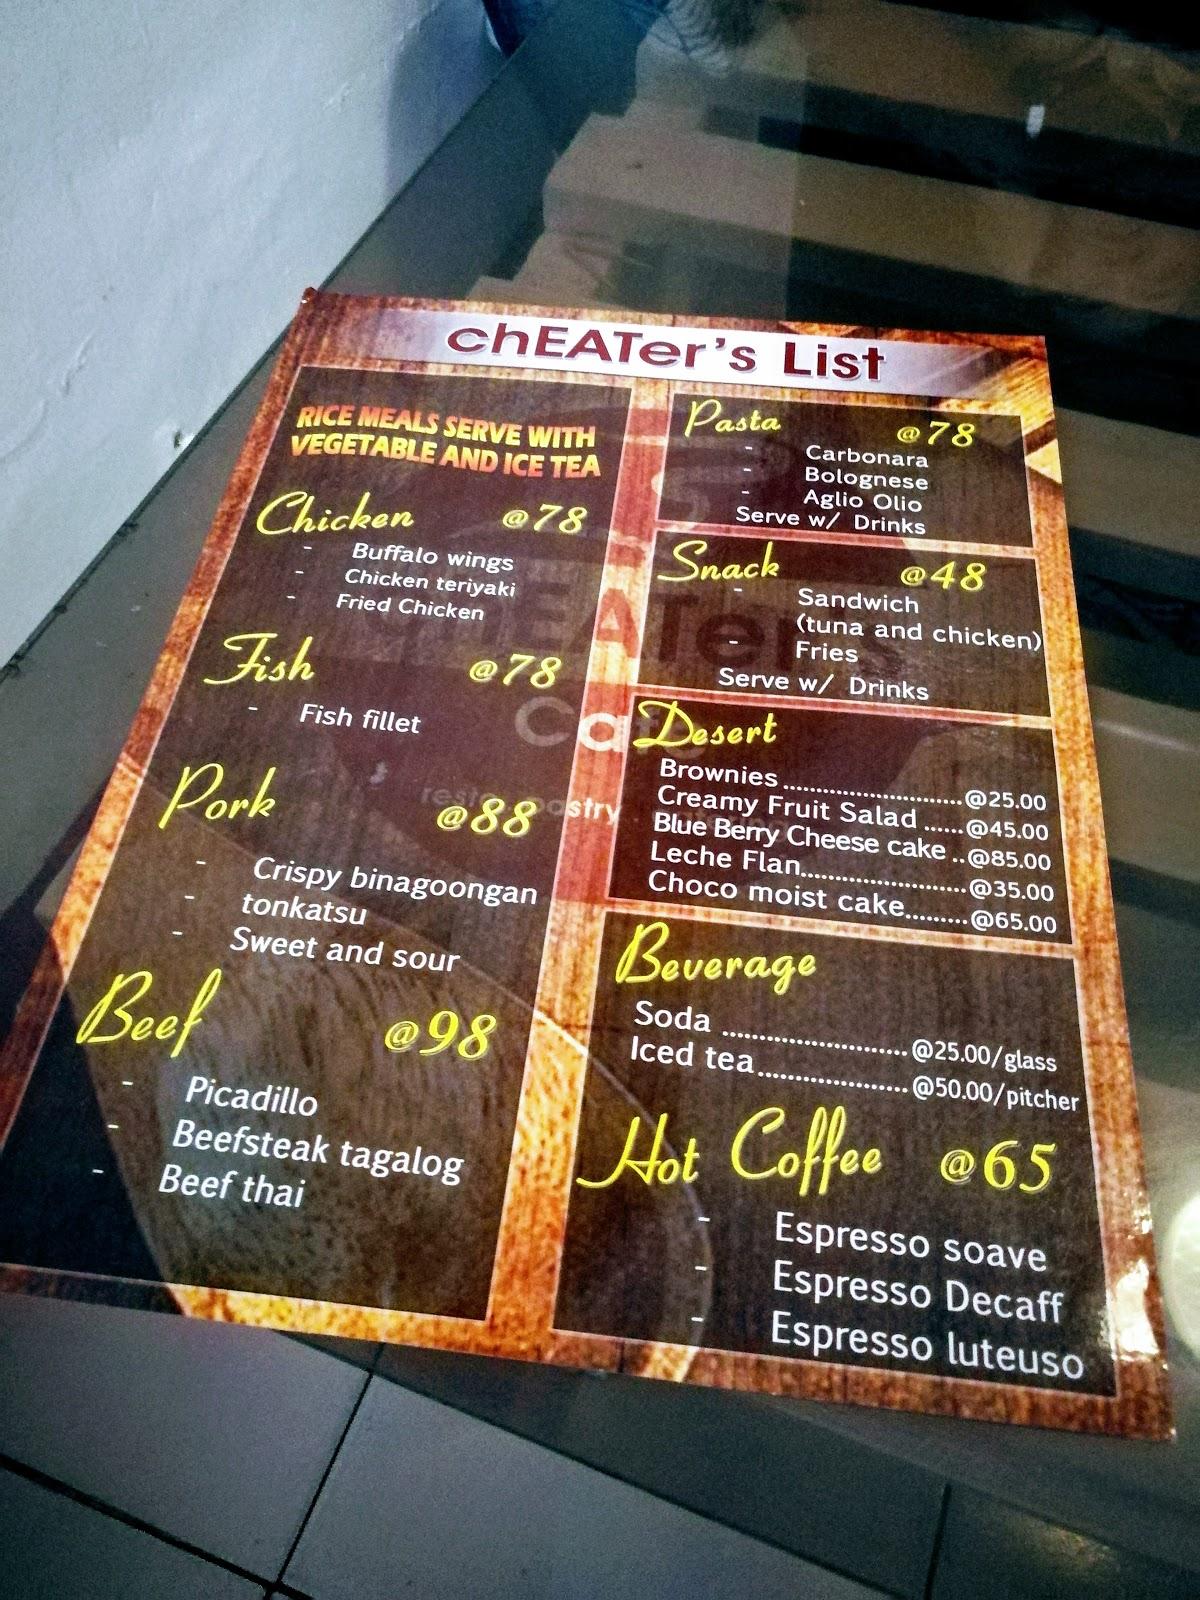 chEATer's List
RICE MEALS SERVE WITH
VEGETABLE AND ICE TEA
Chicken @78
- Buffalo wings
- Chicken teriyaki
- Fried Chicken
Fish @78
- Fish fillet
Pork @88
- Crispy binagoongan
- tonkatsu
- Sweet and sour
Beef @98
- Picadillo
- Beefsteak tagalog
- Beef thai
Pasta @78
- Carbonara
- Bolognese
- Aglio Olio
Serve w/ Drinks
Snack @48
- Sandwich
(tuna and chicken)
- Fries
Serve w/ Drinks
Desert
Brownies ..........................@25.00
Creamy Fruit Salad ......@45.00
Blue Berry Cheese cake ..@85.00
Leche Flan........................@35.00
Choco moist cake.........@65.00
Beverage
Soda ...........................@25.00/glass
Iced tea......................@50.00/pitcher
Hot Coffee @65
- Espresso soave
- Espresso Decaff
- Espresso luteuso